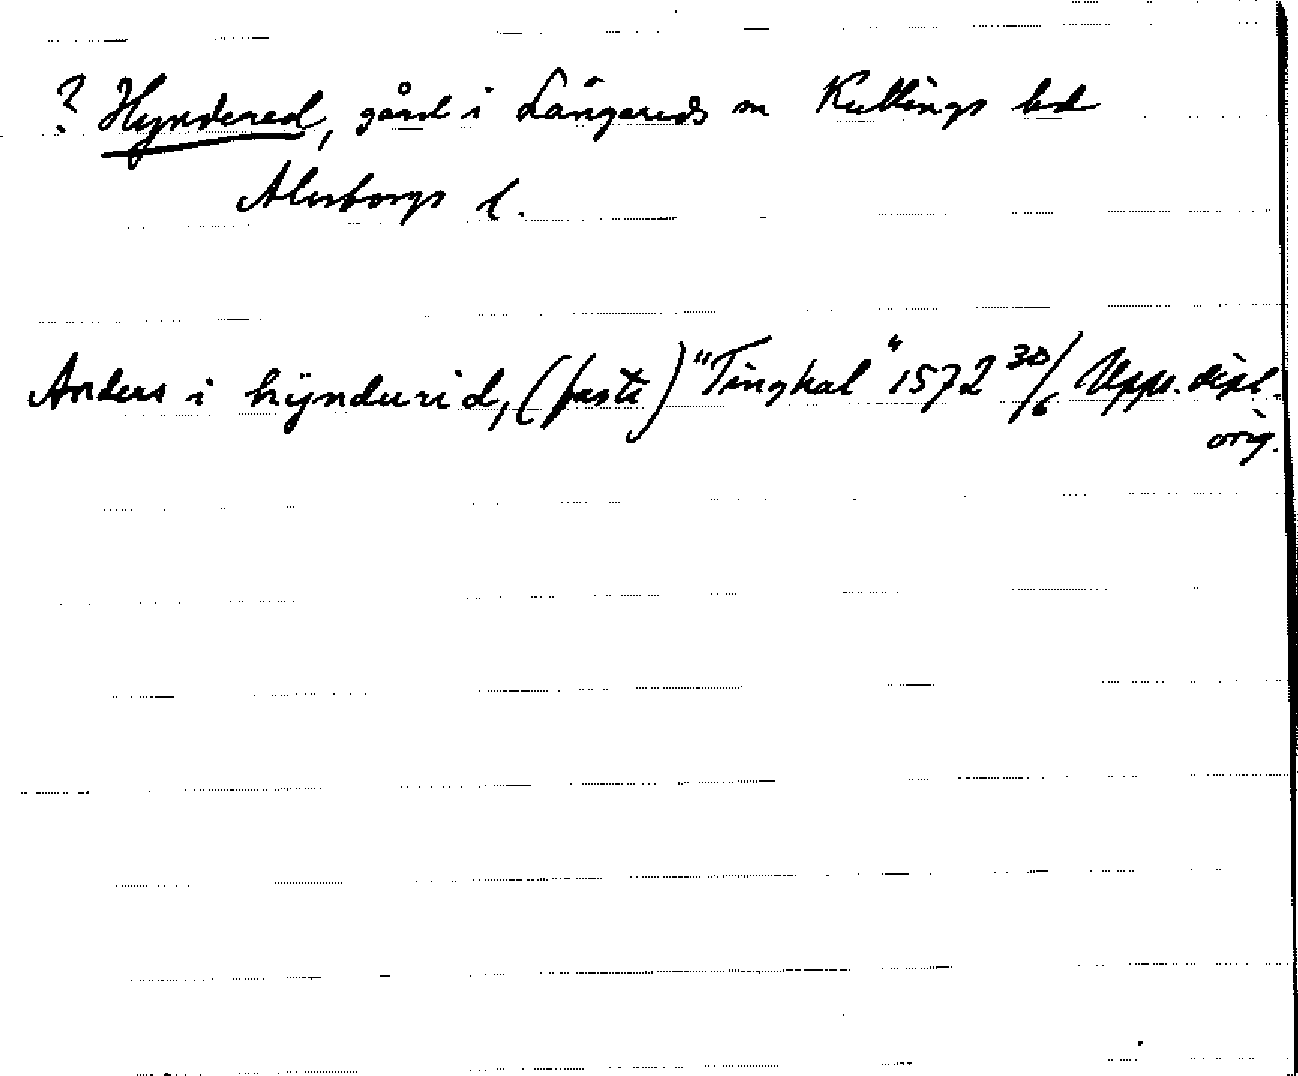 ? Hyndered, gård i Långareds sn Kullings hd
Älvsborgs l.
Anders i hÿnderid, (faste) "Tinghal" 1572 30/6 Upps. dipl.
orig.